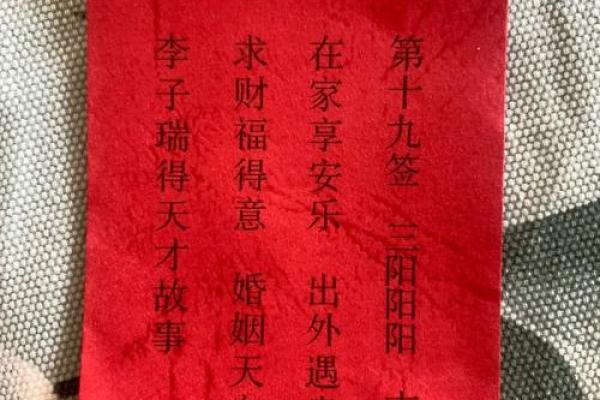 第十九签 三阳阳阳
在家享安乐 出外遇
求财福得意 婚姻天
李子瑞得天才故事